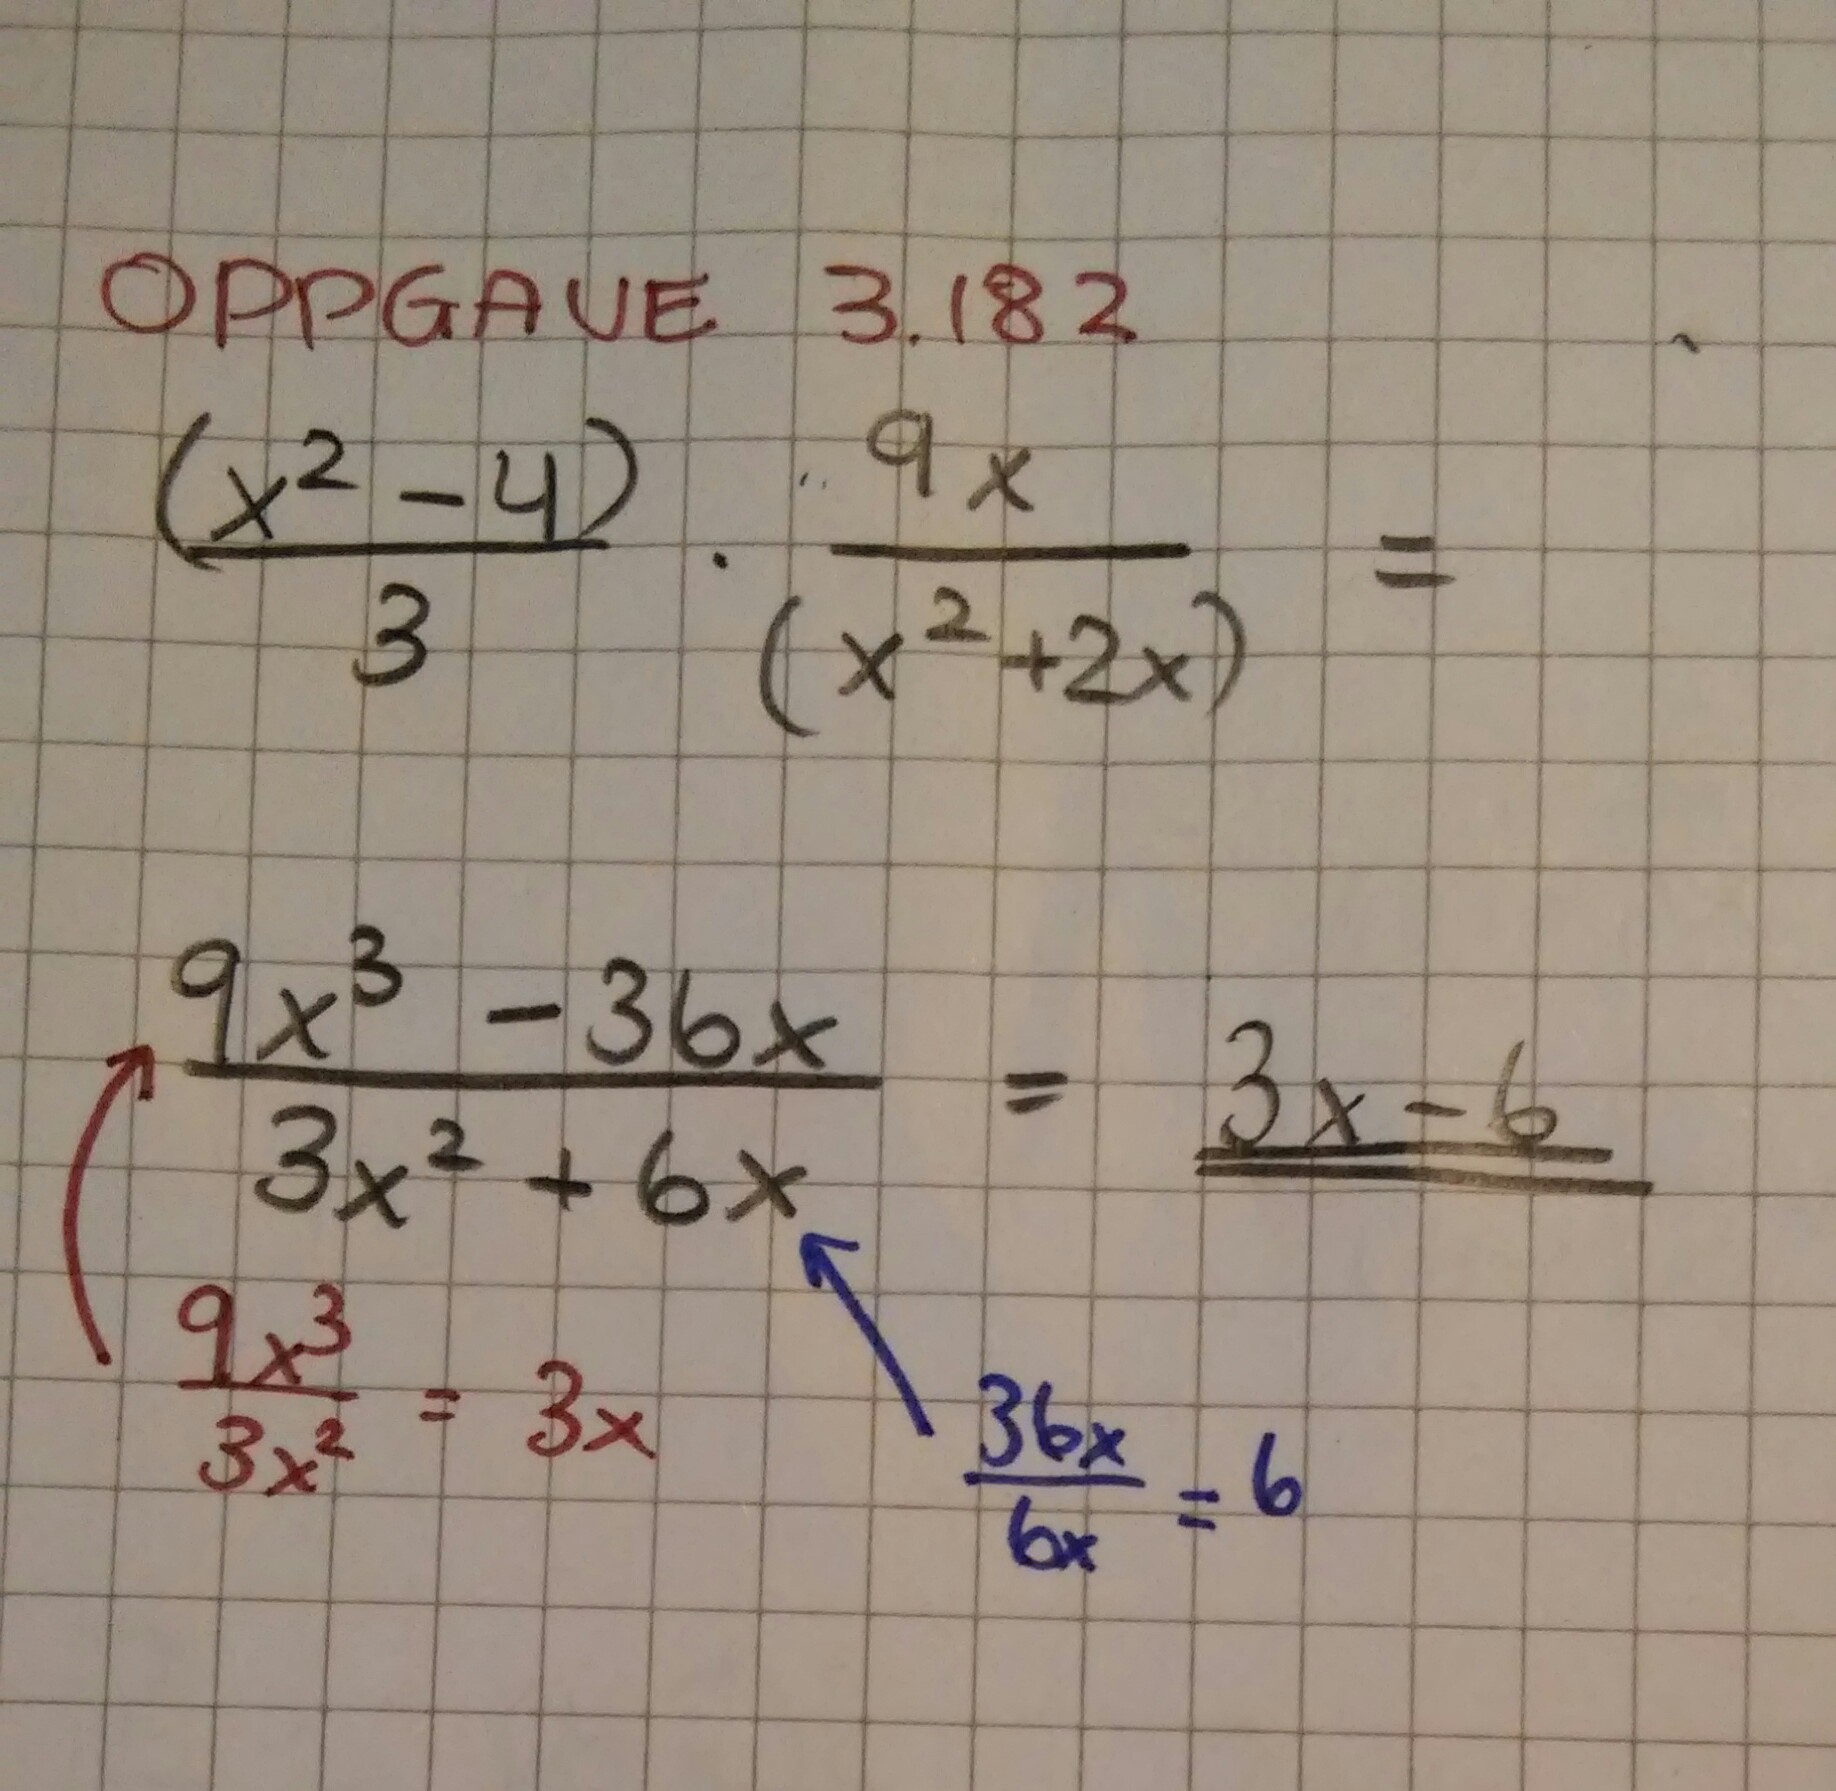 OPPGAVE 3.182
(x² - 4)/3 · 9x/(x² + 2x) =
(9x³ - 36x)/(3x² + 6x) = 3x - 6
9x³/3x² = 3x
36x/6x = 6